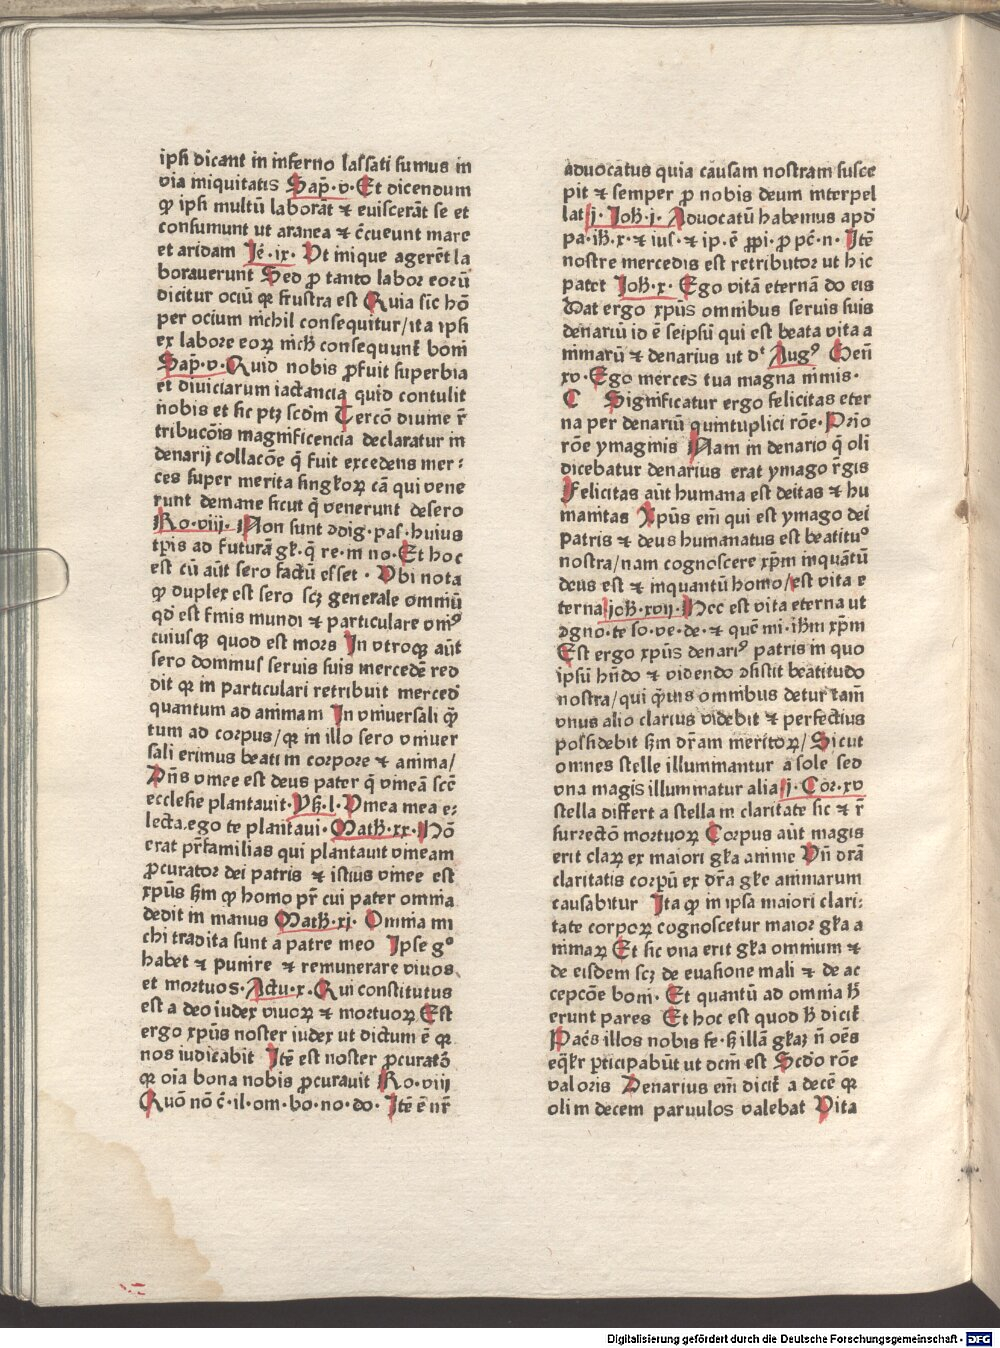 ipſi dicant in inferno laſſati ſumus in
via iniquitatis Sap̄·v· Et dicendum
ꝙ ipſi multū laborāt ⁊ euiſcerāt ſe et
conſumunt ut aranea ⁊ c̄cueunt mare
et aridam Je͛·ix· Ut inique agerēt la
borauerunt Sed ꝓ tanto labor eorū
dicitur ociū qꝛ fruſtra eſt Quia ſic̄ hō
per ocium nichil conſequitur/ita ipſi
ex labore eoꝝ nichꝉ conſequunt᷑ boni
Sap̄·v· Quid nobis ꝓfuit ſuperbia
et diuiciarum iactancia quid contulit
nobis et ſic ptꝫ ſcdm̄ Tercō diuine r̄
tribucōis magnificencia declaratur in
denarij collacōe q̄ fuit excedens mer⸗
ces ſuper merita ſingloꝝ cā qui vene
runt demane ſicut q̄ venerunt deſero
Ro·viij· Non ſunt ↄdig·paſ·huius
tp̄is ad futurā gꝉ·q̄ re·in no·Et hoc
eſt cū aūt ſero factū eſſet · Ubi nota
ꝙ duplex eſt ſero ſcꝫ generale omniū
qd̄ eſt finis mundi ⁊ particulare vniꝰ
cuiuſqꝫ quod eſt mors In vtroqꝫ aūt
ſero dominus ſeruis ſuis mercedē red
dit qꝛ in particulari retribuit merced̄
quantum ad animam In vniuerſali q̄ꝫ
tum ad corpus/qꝛ in illo ſero vniuer
ſali erimus beati in corpore ⁊ anima/
Dn̄s vinee eſt deus pater q̄ vineā ſcē
eccleſie plantauit·Yſ·l·Vinea mea e⸗
lecta.ego te plantaui·Math̄·xx·Nō
erat pr̄familias qui plantauit vineam
ꝓcurator dei patris ⁊ iſtius vinee eſt
xp̄us ẜm ꝙ homo pr̄ cui pater omnia
dedit in manus Math̄·xi· Omnia mi
chi tradita ſunt a patre meo Ipſe gͦ
habet ⁊ punire ⁊ remunerare viuos
et mortuos·Actu·x·Qui conſtitutus
eſt a deo iudex viuoꝝ ⁊ mortuoꝝ Eſt
ergo xp̄us noſter iudex ut dictum ē qꝛ
nos iudicabit Itē eſt noſter ꝓcuratō
qꝛ oīa bona nobis ꝓcurauit Ro·viij
Quō nō c̄·il·om·bo·no·do· Itē ē nr̄
aduocatus quia cauſam noſtram ſuſce
pit ⁊ ſemper ꝓ nobis deum interpel
lat j· Joh̄·j· Aduocatū habemus apd̄
pa·ih̄·x·⁊ iuſ·⁊ ip·ē ꝓpi·ꝓ pc̄·n· Itē
noſtre mercedis eſt retributor ut hic
patet Joh̄·x· Ego vitā eternā do eis
Dat ergo xp̄us omnibus ſeruis ſuis
denariū id ē ſeipſū qui eſt beata vita a
nimarū ⁊ denarius ut dᵗ Augꝰ Gen̄
xv·Ego merces tua magna nimis·
C Significatur ergo felicitas eter
na per denariū quintuplici rōe·Prīo
rōe ymaginis Nam in denario q̄ oli
dicebatur denarius erat ymago r̄gis
Felicitas aūt humana eſt deitas ⁊ hu
manitas Xp̄us em̄ qui eſt ymago dei
patris ⁊ deus humanatus eſt beatituͦ
noſtra/nam cognoſcere xp̄m inquātū
deus eſt ⁊ inquantū homo/eſt vita e
terna joh̄·xvij·Hec eſt vita eterna ut
ↄgno·te ſo·ve·de·⁊ quē mi·ih̄m xp̄m
Eſt ergo xp̄us denariꝰ patris in quo
ipſū hn̄do ⁊ videndo ↄſiſtit beatitudo
noſtra/qui q̄uis omnibus detur tam̄
vnus alio clarius videbit ⁊ perfectius
poſſidebit ẜm dr̄am meritoꝝ/Sicut
omnes ſtelle illuminantur a ſole ſed
vna magis illuminatur alia j· Cor·xv
ſtella differt a ſtella in claritate ſic ⁊ r̄
ſurrectō mortuoꝝ Corpus aūt magis
erit claꝝ ex maiori gl̄ia anime Vn̄ dr̄ā
claritatis corpū ex dr̄a gl̄ie animarum
cauſabitur Ita ꝙ in ipſa maiori clari⸗
tate corporꝝ cognoſcetur maior gl̄ia a
nimaꝝ Et ſic vna erit gl̄ia omnium ⁊
de eiſdem ſcꝫ de euaſione mali ⁊ de ac
cepcōe boni· Et quantū ad omnia h̄
erunt pares Et hoc eſt quod h̄ dicit᷑
Pac̄s illos nobis fe·ẜ illā gl̄iaꝫ n̄ oēs
eql̄r ꝑticipabūt ut dcm̄ eſt Scdo rōe
valoris Denarius em̄ dicit᷑ a decē qꝛ
olim decem paruulos valebat Vita
Digitalisierung gefördert durch die Deutsche Forschungsgemeinschaft · DFG